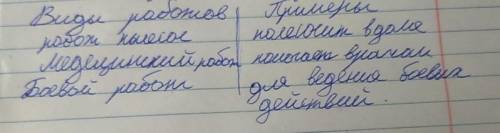 Виды работов Примеры
робот пылесос пылесосит вдома
Медецинский робот помогает врачам
Боевой работ для ведения боевых
действий.